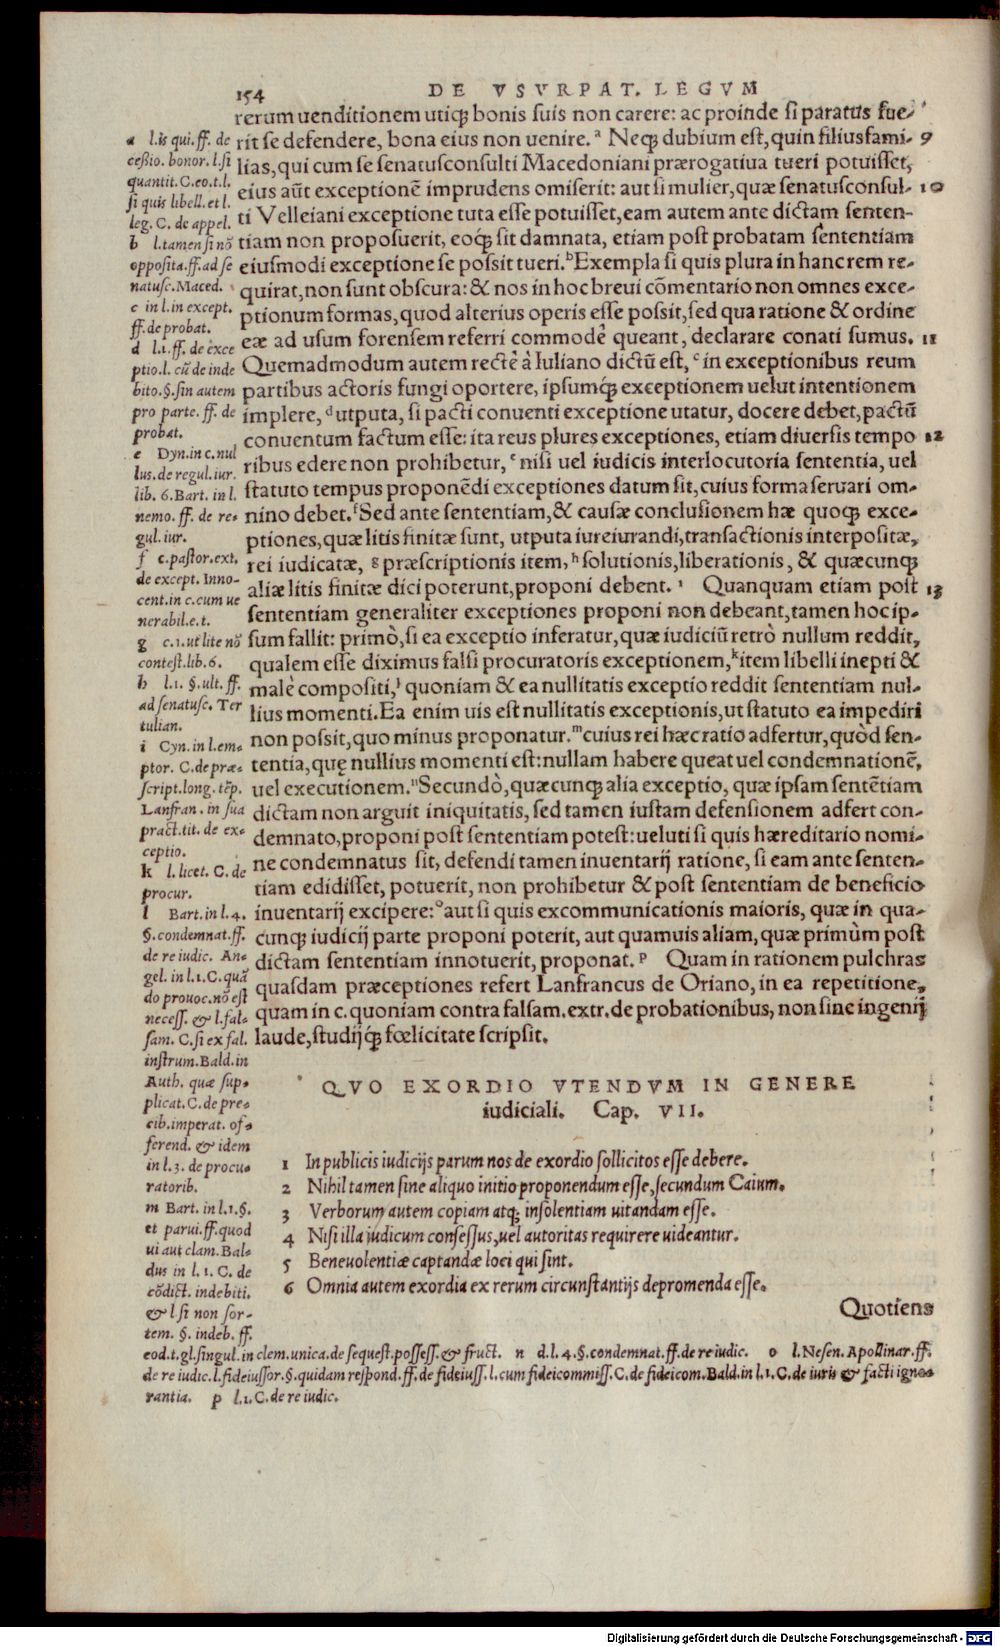 154 DE VSVRPAT. LEGVM
rerum uenditionem utiq; bonis suis non carere: ac proinde si paratus fue-
rit se defendere, bona eius non uenire.ᵃ Neq; dubium est, quin filiusfami- 9
lias, qui cum se senatusconsulti Macedoniani prærogatiua tueri potuisset,
eius aūt exceptionē imprudens omiserit: aut si mulier, quæ senatusconsul- 10
ti Velleiani exceptione tuta esse potuisset, eam autem ante dictam senten-
tiam non proposuerit, eoq́; sit damnata, etiam post probatam sententiam
eiusmodi exceptione se possit tueri.ᵇ Exempla si quis plura in hanc rem re-
quirat, non sunt obscura: & nos in hoc breui cōmentario non omnes exce-
ptionum formas, quod alterius operis esse possit, sed qua ratione & ordine
eæ ad usum forensem referri commodè queant, declarare conati sumus. 11
Quemadmodum autem rectè à Iuliano dictū est, ᶜ in exceptionibus reum
partibus actoris fungi oportere, ipsumq́; exceptionem uelut intentionem
implere, ᵈ utputa, si pacti conuenti exceptione utatur, docere debet, pactū
conuentum factum esse: ita reus plures exceptiones, etiam diuersis tempo 12
ribus edere non prohibetur, ᵉ nisi uel iudicis interlocutoria sententia, uel
statuto tempus proponēdi exceptiones datum sit, cuius forma seruari om-
nino debet.ᶠ Sed ante sententiam, & causæ conclusionem hæ quoq; exce-
ptiones, quæ litis finitæ sunt, utputa iureiurandi, transactionis interpositæ,
rei iudicatæ, ᵍ præscriptionis item, ʰ solutionis, liberationis, & quæcunq;
aliæ litis finitæ dici poterunt, proponi debent. ⁱ Quanquam etiam post 13
sententiam generaliter exceptiones proponi non debeant, tamen hoc ip-
sum fallit: primò, si ea exceptio inferatur, quæ iudiciū retrò nullum reddit,
qualem esse diximus falsi procuratoris exceptionem, ᵏ item libelli inepti &
malè compositi, ˡ quoniam & ea nullitatis exceptio reddit sententiam nul-
lius momenti. Ea enim uis est nullitatis exceptionis, ut statuto ea impediri
non possit, quo minus proponatur.ᵐ cuius rei hæc ratio adfertur, quòd sen-
tentia, quę nullius momenti est: nullam habere queat uel condemnationē,
uel executionem.ⁿ Secundò, quæcunq; alia exceptio, quæ ipsam sentētiam
dictam non arguit iniquitatis, sed tamen iustam defensionem adfert con-
demnato, proponi post sententiam potest: ueluti si quis hæreditario nomi-
ne condemnatus sit, defendi tamen inuentarij ratione, si eam ante senten-
tiam edidisset, potuerit, non prohibetur & post sententiam de beneficio
inuentarij excipere: ᵒ aut si quis excommunicationis maioris, quæ in qua-
cunq; iudicij parte proponi poterit, aut quamuis aliam, quæ primùm post
dictam sententiam innotuerit, proponat. ᵖ Quam in rationem pulchras
quasdam præceptiones refert Lanfrancus de Oriano, in ea repetitione,
quam in c. quoniam contra falsam. extr. de probationibus, non sine ingenij
laude, studijq́; fœlicitate scripsit.
a l. is qui. ff. de
ceßio. bonor. l. si
quantit. C. eo. t. l.
si quis libell. et l.
leg. C. de appel.
b l. tamen si nō
opposita. ff. ad se
natusc. Maced.
c in l. in except.
ff. de probat.
d l. 1. ff. de exce
ptio. l. cū de inde
bito. §. sin autem
pro parte. ff. de
probat.
e Dyn. in c. nul
lus. de regul. iur.
lib. 6. Bart. in l.
nemo. ff. de re-
gul. iur.
f c. pastor. ext.
de except. Inno-
cent. in c. cum ue
nerabil. e. t.
g c. 1. ut lite nō
contest. lib. 6.
h l. 1. §. ult. ff.
ad senatusc. Ter
tulian.
i Cyn. in l. em-
ptor. C. de præ-
script. long. tēp.
Lanfran. in sua
pract. tit. de ex-
ceptio.
k l. licet. C. de
procur.
l Bart. in l. 4.
§. condemnat. ff.
de re iudic. An-
gel. in l. 1. C. quā
do prouoc. nō est
necess. & l. fal-
sam. C. si ex fal.
instrum. Bald. in
Auth. quæ sup-
plicat. C. de pre-
cib. imperat. of-
ferend. & idem
in l. 3. de procu-
ratorib.
m Bart. in l. 1. §.
et parui. ff. quod
ui aut clam. Bal-
dus in l. 1. C. de
cōdict. indebiti.
& l. si non sor-
tem. §. indeb. ff.
QVO EXORDIO VTENDVM IN GENERE
iudiciali. Cap. VII.
1 In publicis iudicijs parum nos de exordio sollicitos esse debere.
2 Nihil tamen sine aliquo initio proponendum esse, secundum Caium.
3 Verborum autem copiam atq; insolentiam uitandam esse.
4 Nisi illa judicum consessus, uel autoritas requirere uideantur.
5 Beneuolentiæ captandæ loci qui sint.
6 Omnia autem exordia ex rerum circunstantijs depromenda esse.
Quotiens
eod. t. gl. singul. in clem. unica. de sequest. possess. & fruct. n d. l. 4. §. condemnat. ff. de re iudic. o l. Nesen. Apollinar. ff.
de re iudic. l. fideiussor. §. quidam respond. ff. de fideiuss. l. cum fideicommiss. C. de fideicom. Bald. in l. 1. C. de iuris & facti igno-
rantia. p l. 1. C. de re iudic.
Digitalisierung gefördert durch die Deutsche Forschungsgemeinschaft - DFG